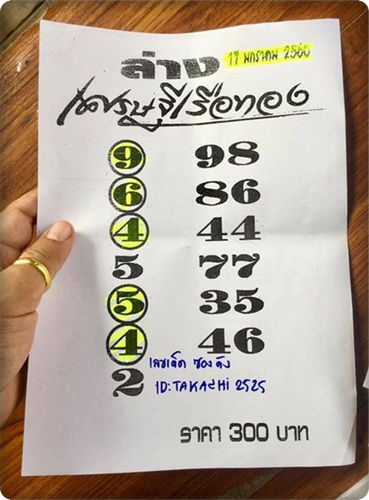 ล่าง 17 มกราคม 2560
เศรษฐีเรือทอง
9 98
6 86
4 44
5 77
5 35
4 46
เลขเด็ด ซองดัง
2 ID:TAKACHI 2525
ราคา 300 บาท